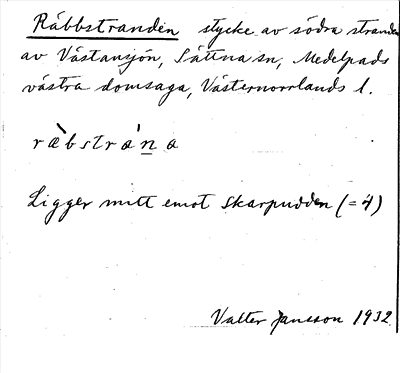 Räbbstranden stycke av södra stranden
av Västansjön, Sättna sn, Medelpads
västra domsaga, Västernorrlands l.
ræ̀bstrán̲a
Ligger mitt emot skarpudden (= 4)
Valter Jansson 1932